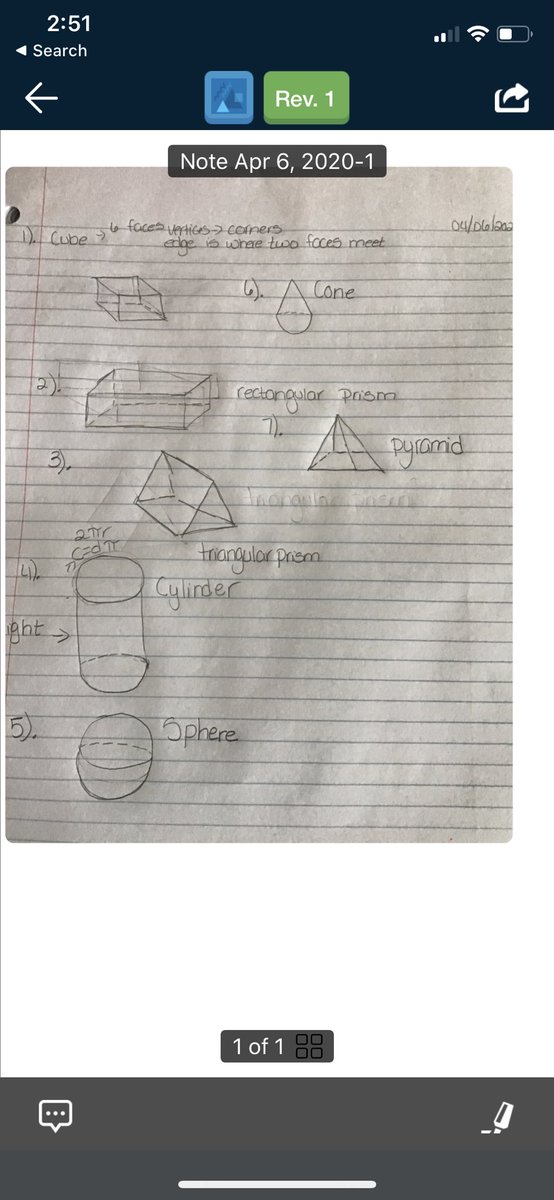 2:51
◀ Search
Rev. 1
Note Apr 6, 2020-1
04/06/202
1). Cube → 6 faces vertices → corners
edge is where two faces meet
6). Cone
2).
rectangular prism
7).
pyramid
3).
triangular prism
2πr
C=dπ
triangular prism
4).
Cylinder
ight →
5).
Sphere
1 of 1